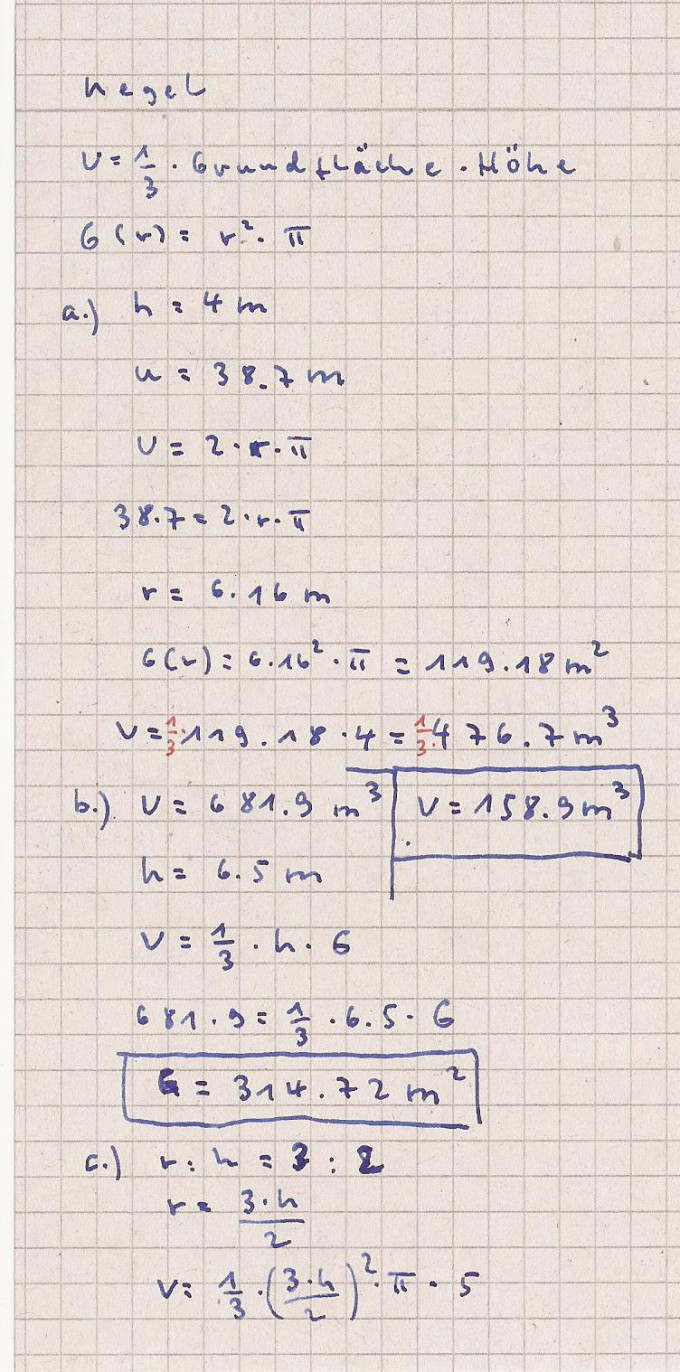 Kegel
V = 1/3 · Grundfläche · Höhe
G(r) = r² · π
a.) h = 4 m
u = 38.7 m
U = 2 · r · π
38.7 = 2 · r · π
r = 6.16 m
G(r) = 6.16² · π = 119.18 m²
V = 1/3 · 119.18 · 4 = 1/3 · 476.7 m³
V = 158.9 m³
b.) V = 681.9 m³
h = 6.5 m
V = 1/3 · h · G
681.9 = 1/3 · 6.5 · G
G = 314.72 m²
c.) r : h = 3 : 2
r = 3·h/2
V = 1/3 · (3·h/2)² · π · 5